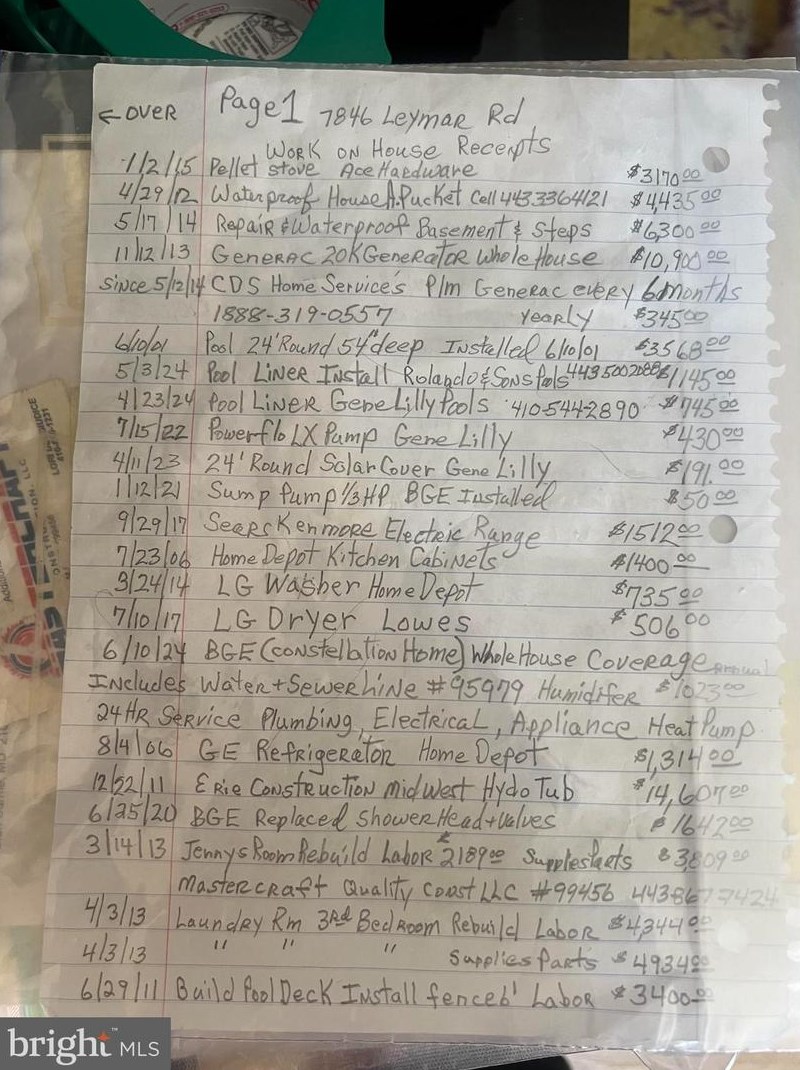 ← OVER Page 1 7846 Leymar Rd
Work on House Receipts
1/2/15 Pellet stove Ace Hardware $3170.00
4/29/12 Waterproof House A. Pucket Cell 443 3364121 $4,435.00
5/17/14 Repair & Waterproof Basement & Steps $6,300.00
11/12/13 Generac 20K Generator Whole House $10,900.00
Since 5/12/14 CDS Home Service's P/m Generac every 6 months
1888-319-0557 yearly $345.00
6/10/01 Pool 24' Round 54" deep Installed 6/10/01 $3568.00
5/3/24 Pool Liner Install Rolando & Sons Pools 443 500 2088 $1145.00
4/23/24 Pool Liner Gene Lilly Pools 410-544-2890 $745.00
7/15/22 Powerflo LX Pump Gene Lilly $430.00
4/11/23 24' Round Solar Cover Gene Lilly $191.00
1/12/21 Sump Pump 1/3 HP BGE Installed $50.00
9/29/17 Sears Kenmore Electric Range $1512.00
7/23/06 Home Depot Kitchen Cabinets $1400.00
3/24/14 LG Washer Home Depot $735.00
7/10/17 LG Dryer Lowes $506.00
6/10/24 BGE (Constellation Home) Whole House Coverage annual
Includes Water + Sewer Line #95979 Humidifer $1023.00
24 HR Service Plumbing, Electrical, Appliance Heat Pump
8/4/06 GE Refrigerator Home Depot $1,314.00
12/22/11 Erie Construction Mid West Hydo Tub $14,607.00
6/25/20 BGE Replaced Shower Head + Valves $1642.00
3/14/13 Jennys Room Rebuild Labor $2189.00 $3,809.00
Mastercraft Quality Const LLC #99456 443867 7424
4/3/13 Laundry Rm 3rd Bedroom Rebuild Labor $4344.00
4/3/13 " " " Supplies Parts $4934.00
6/29/11 Build Pool Deck Install fence 6' Labor $3400.00
bright™ MLS